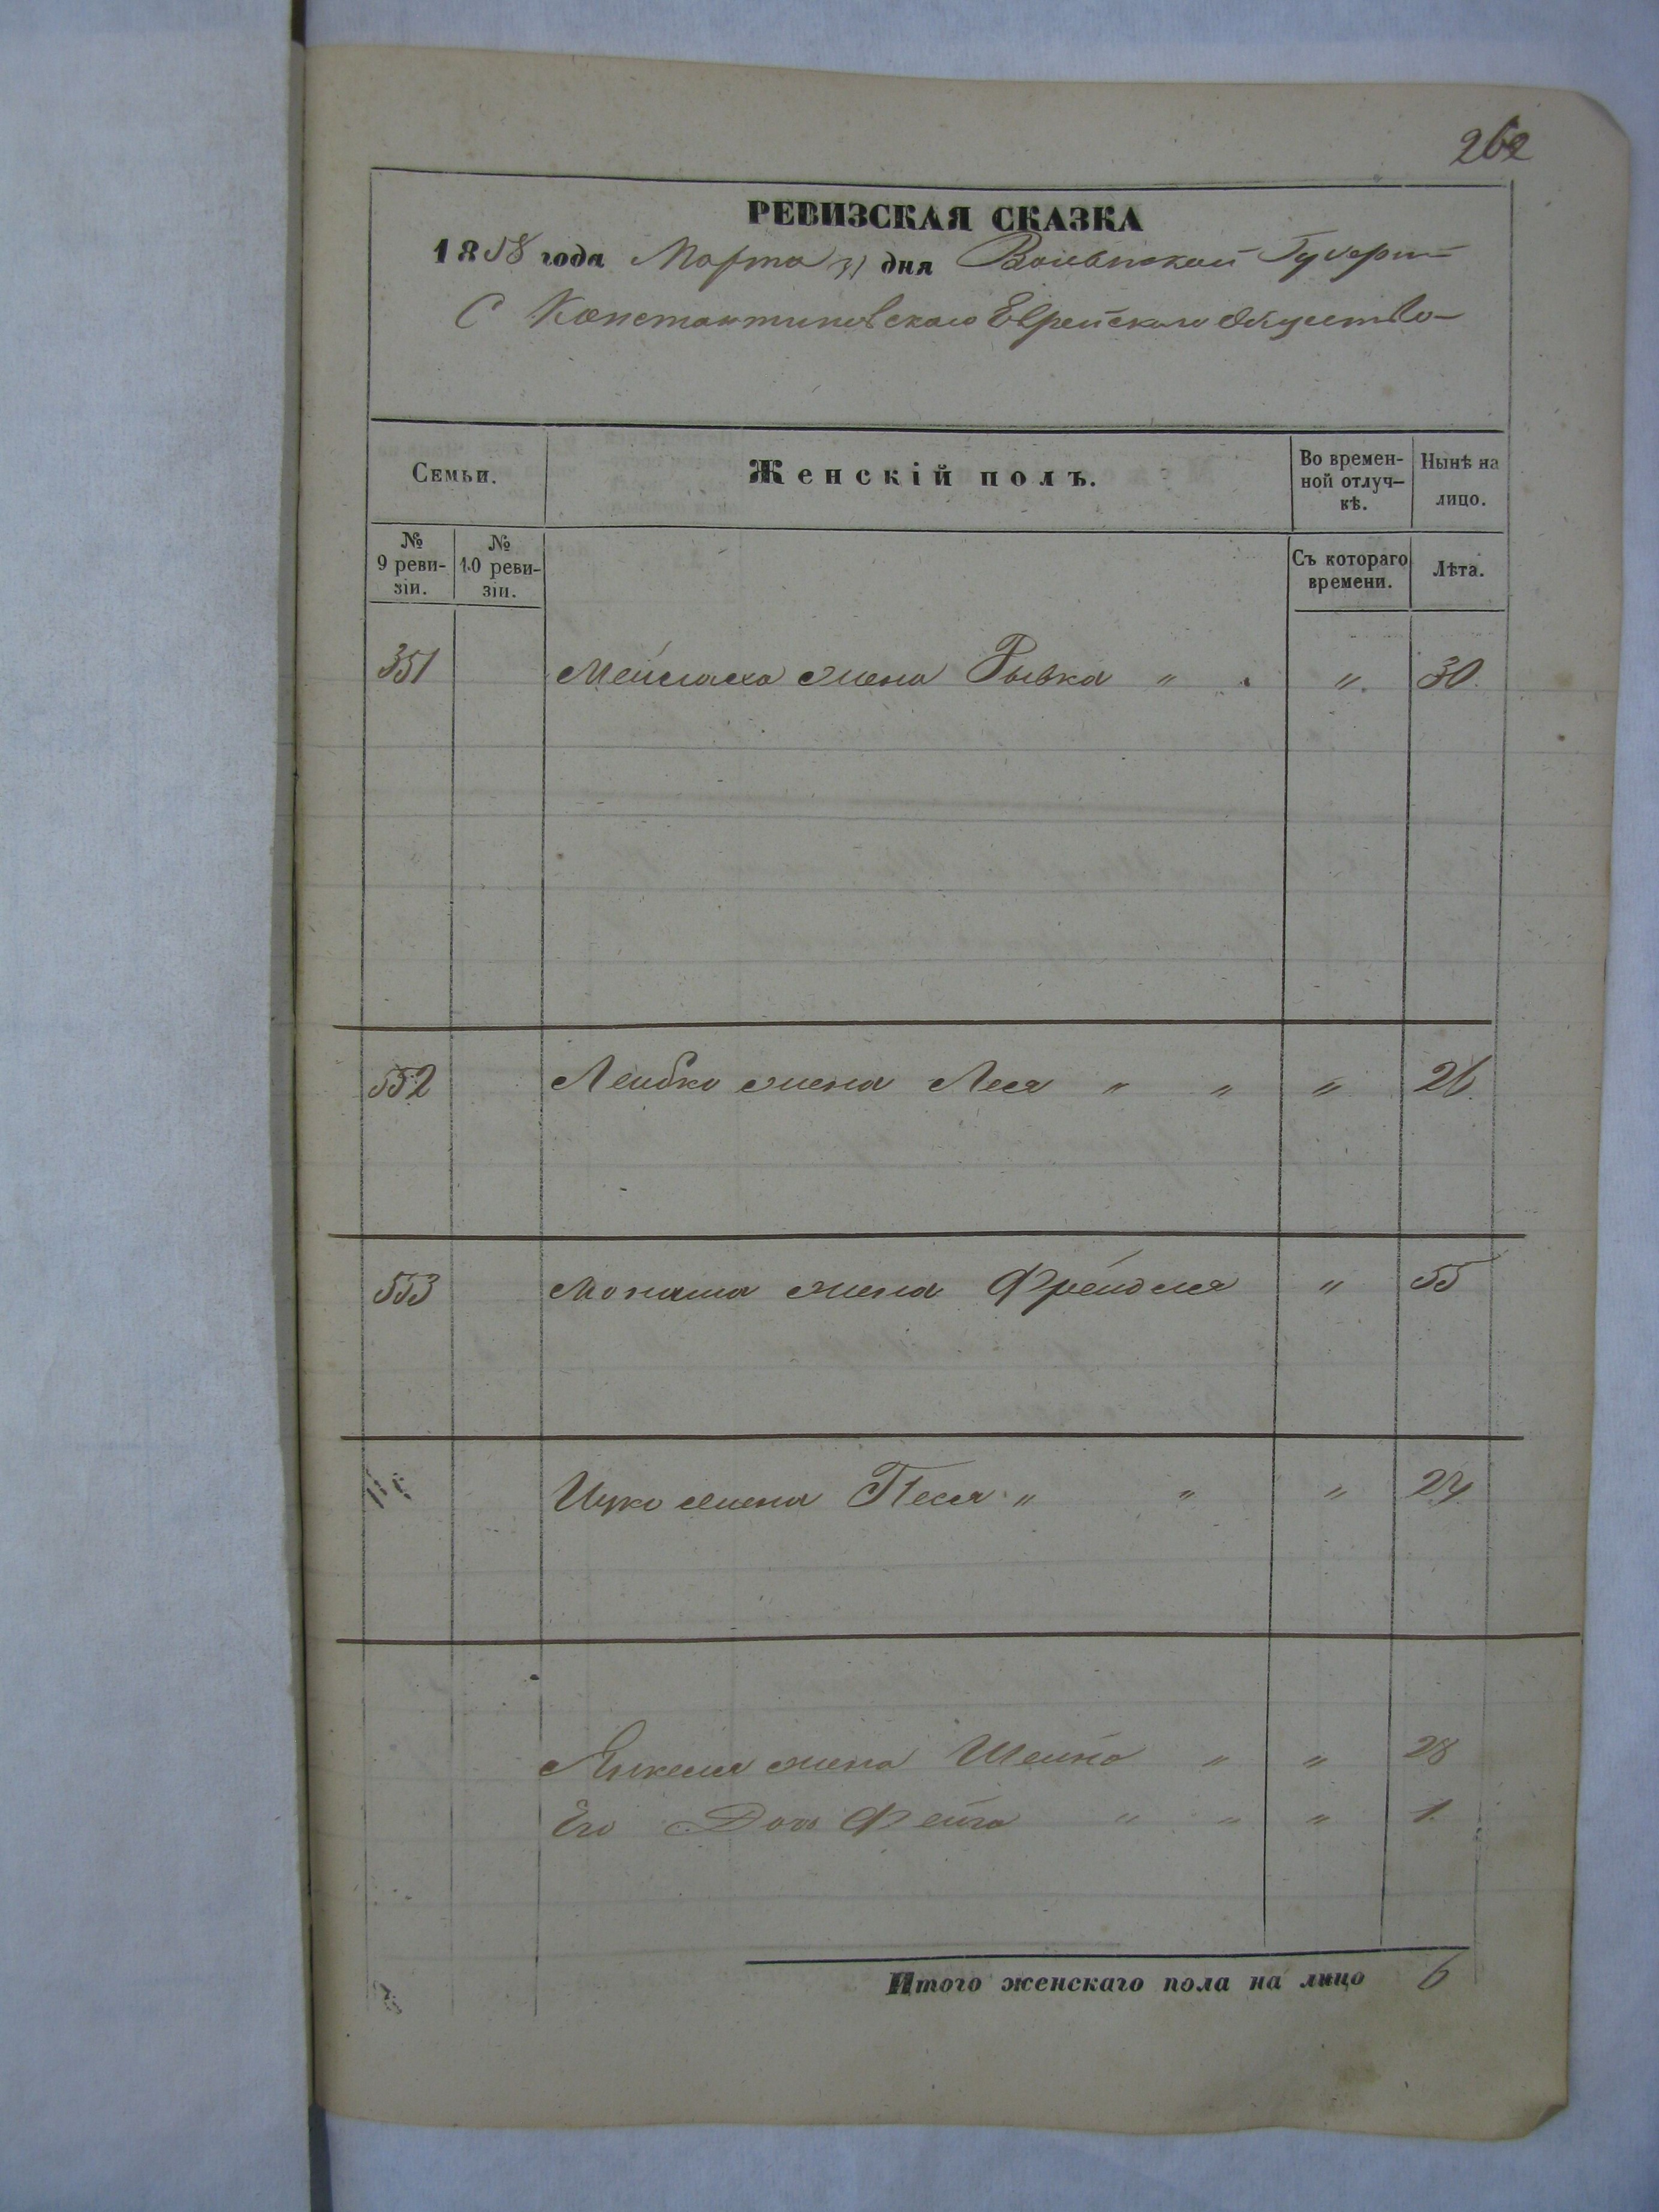 262
РЕВИЗСКАЯ СКАЗКА
1858 года Марта 31 дня Волынской Губерн
С Константиновскаго Еврейскаго Общества
Семьи. Женскій полъ. Во времен-ной отлуч-кѣ. Нынѣ на лицо.
№ 9 реви-зіи. № 10 реви-зіи. Съ котораго времени. Лѣта.
351 жена Рывка " " " 30
552 Лейбко жена Лея " " " 26
553 Монаша жена Фрейдля " 55
Ицко жена Песя " " " 24
Янкеля жена Шейна " " 28
Его Дочь Фейга " " " 1.
Итого женскаго пола на лицо 6